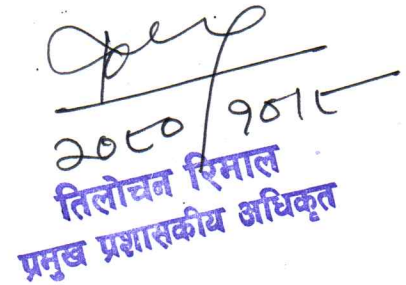 २०८०/१०/८
तिलोचन रिमाल
प्रमुख प्रशासकीय अधिकृत